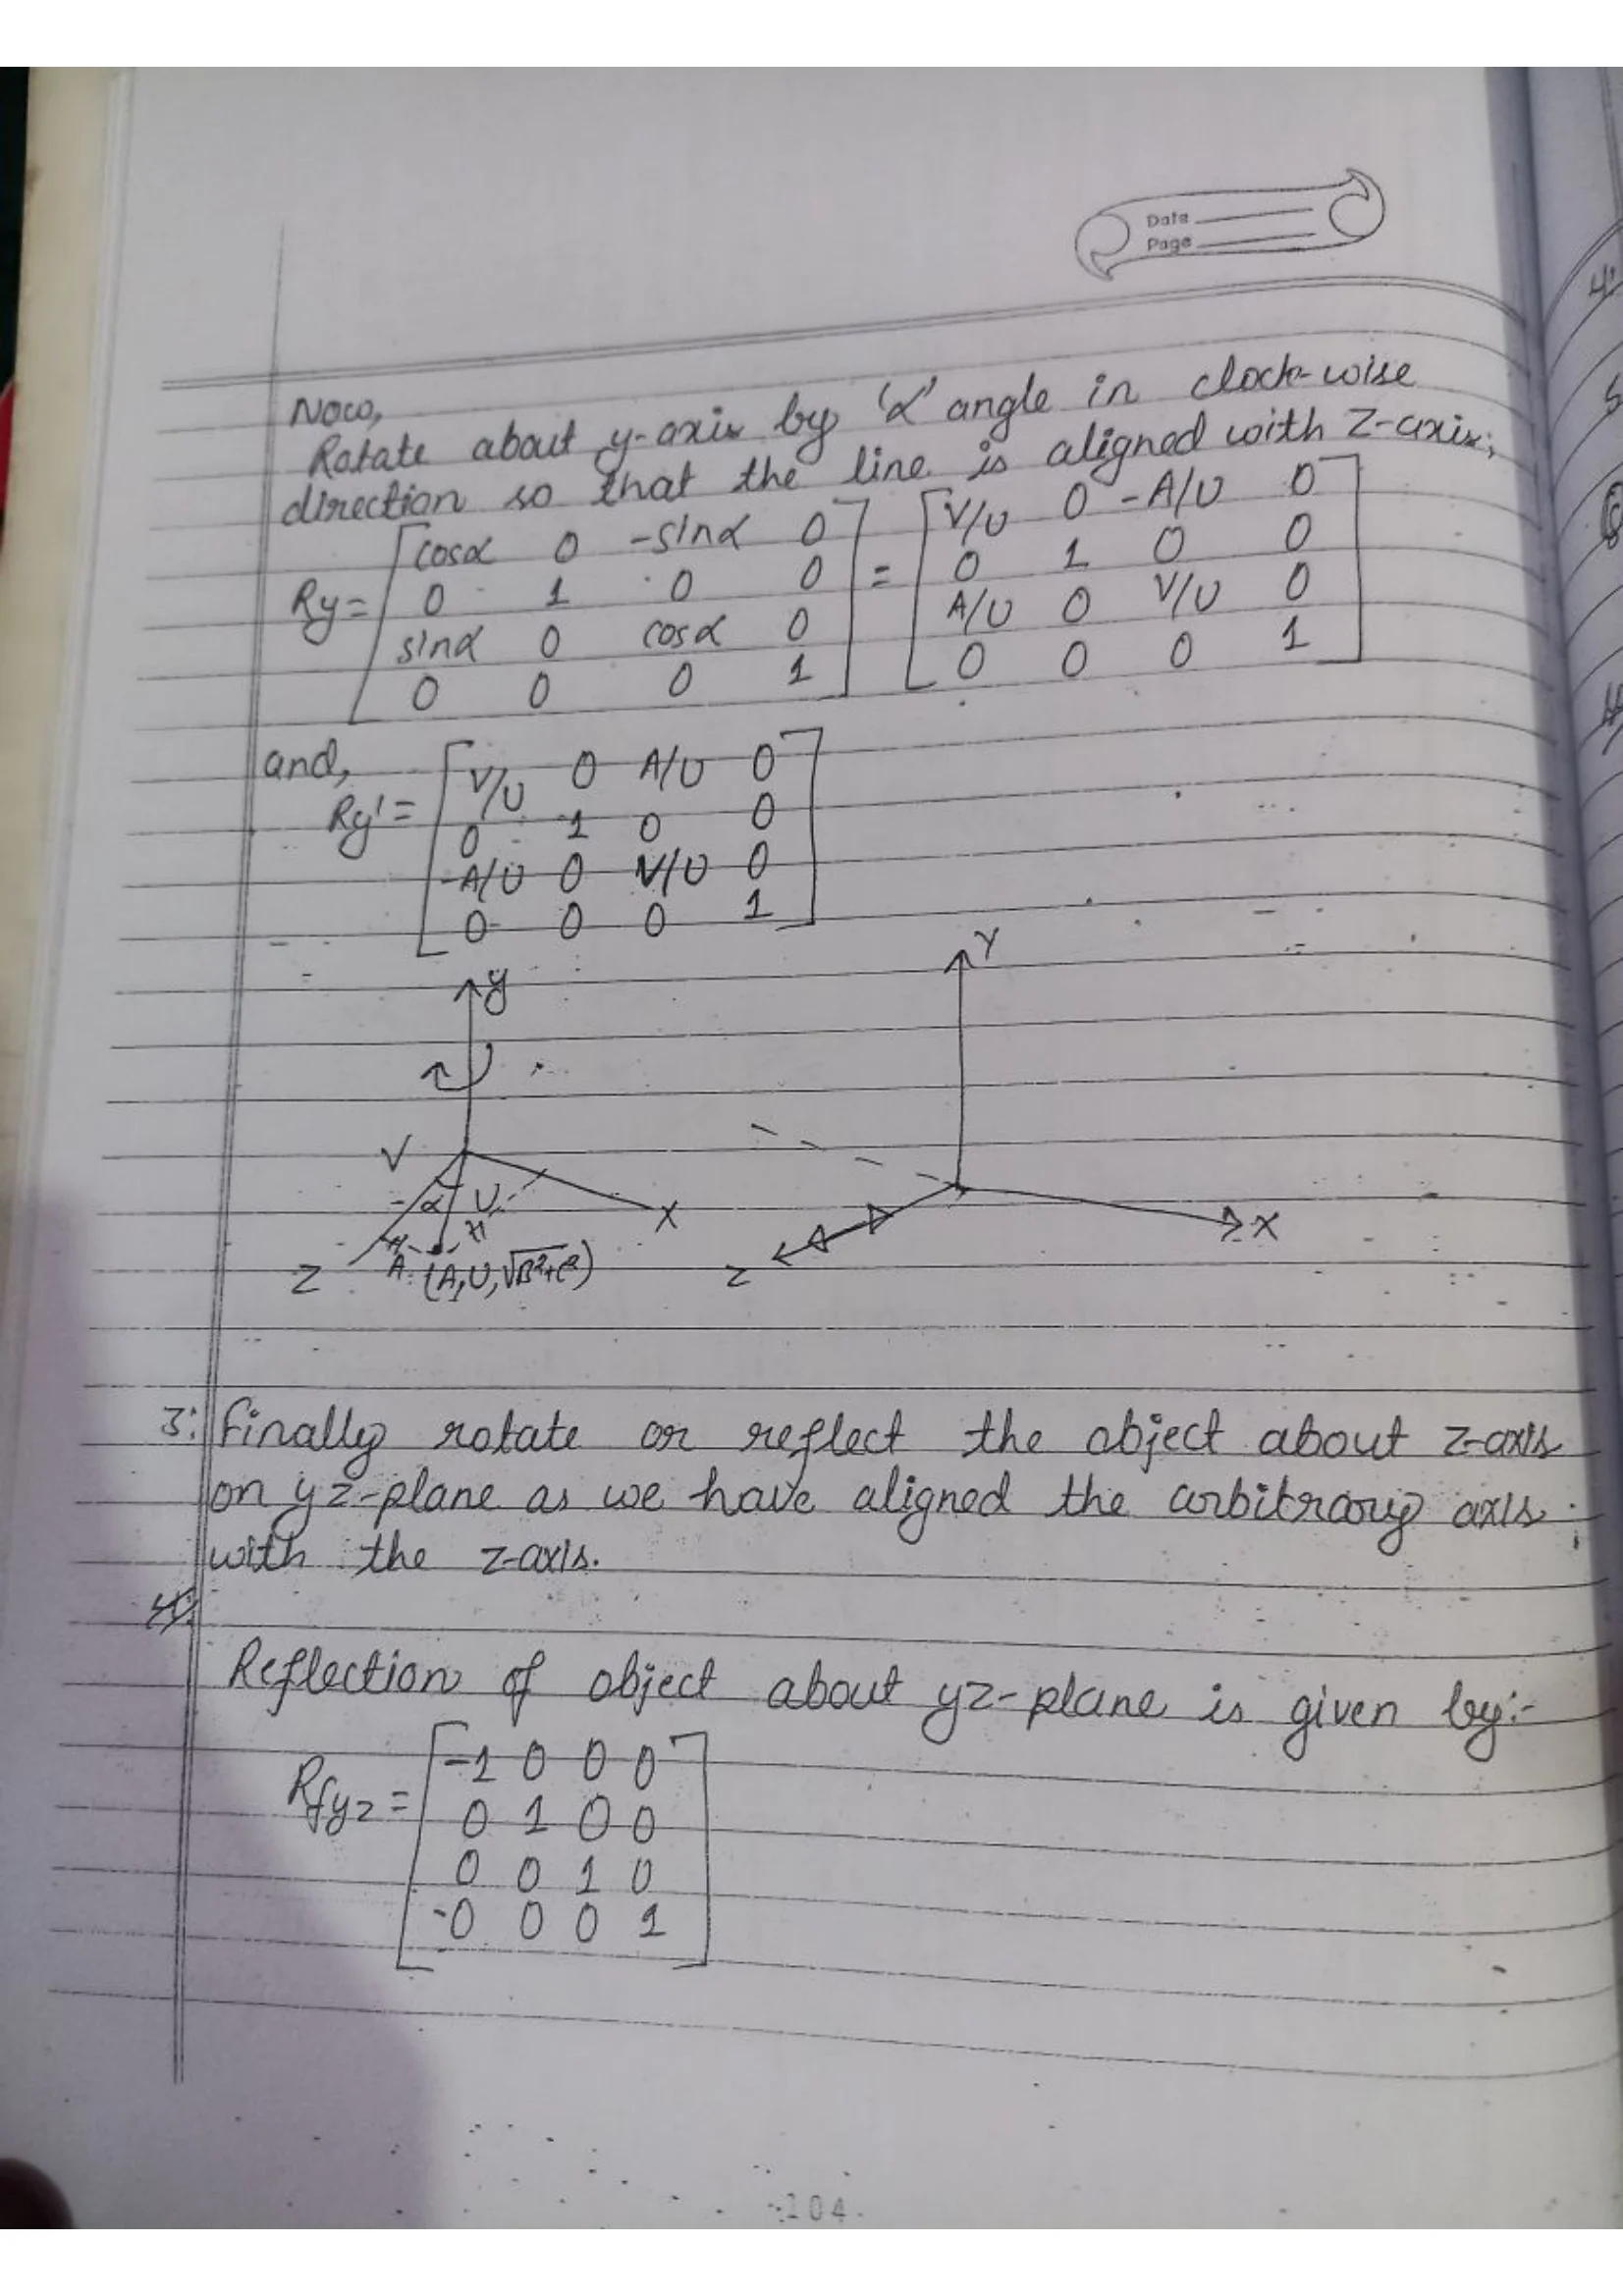 Date
Page
Now,
Rotate about y-axis by 'α' angle in clock-wise
direction so that the line is aligned with Z-axis;
Ry = [cosα 0 -sinα 0] = [V/U 0 -A/U 0]
[0 1 0 0] [0 1 0 0]
[sinα 0 cosα 0] [A/U 0 V/U 0]
[0 0 0 1] [0 0 0 1]
and,
Ry' = [V/U 0 A/U 0]
[0 1 0 0]
[-A/U 0 V/U 0]
[0 0 0 1]
y
V
α U
X
Z
A (A, U, √B²+C²)
Y
X
Z
3: Finally rotate or reflect the object about z-axis
on yz-plane as we have aligned the arbitrary axis
with the z-axis.
Reflection of object about yz-plane is given by:-
Rfyz = [-1 0 0 0]
[0 1 0 0]
[0 0 1 0]
[0 0 0 1]
104